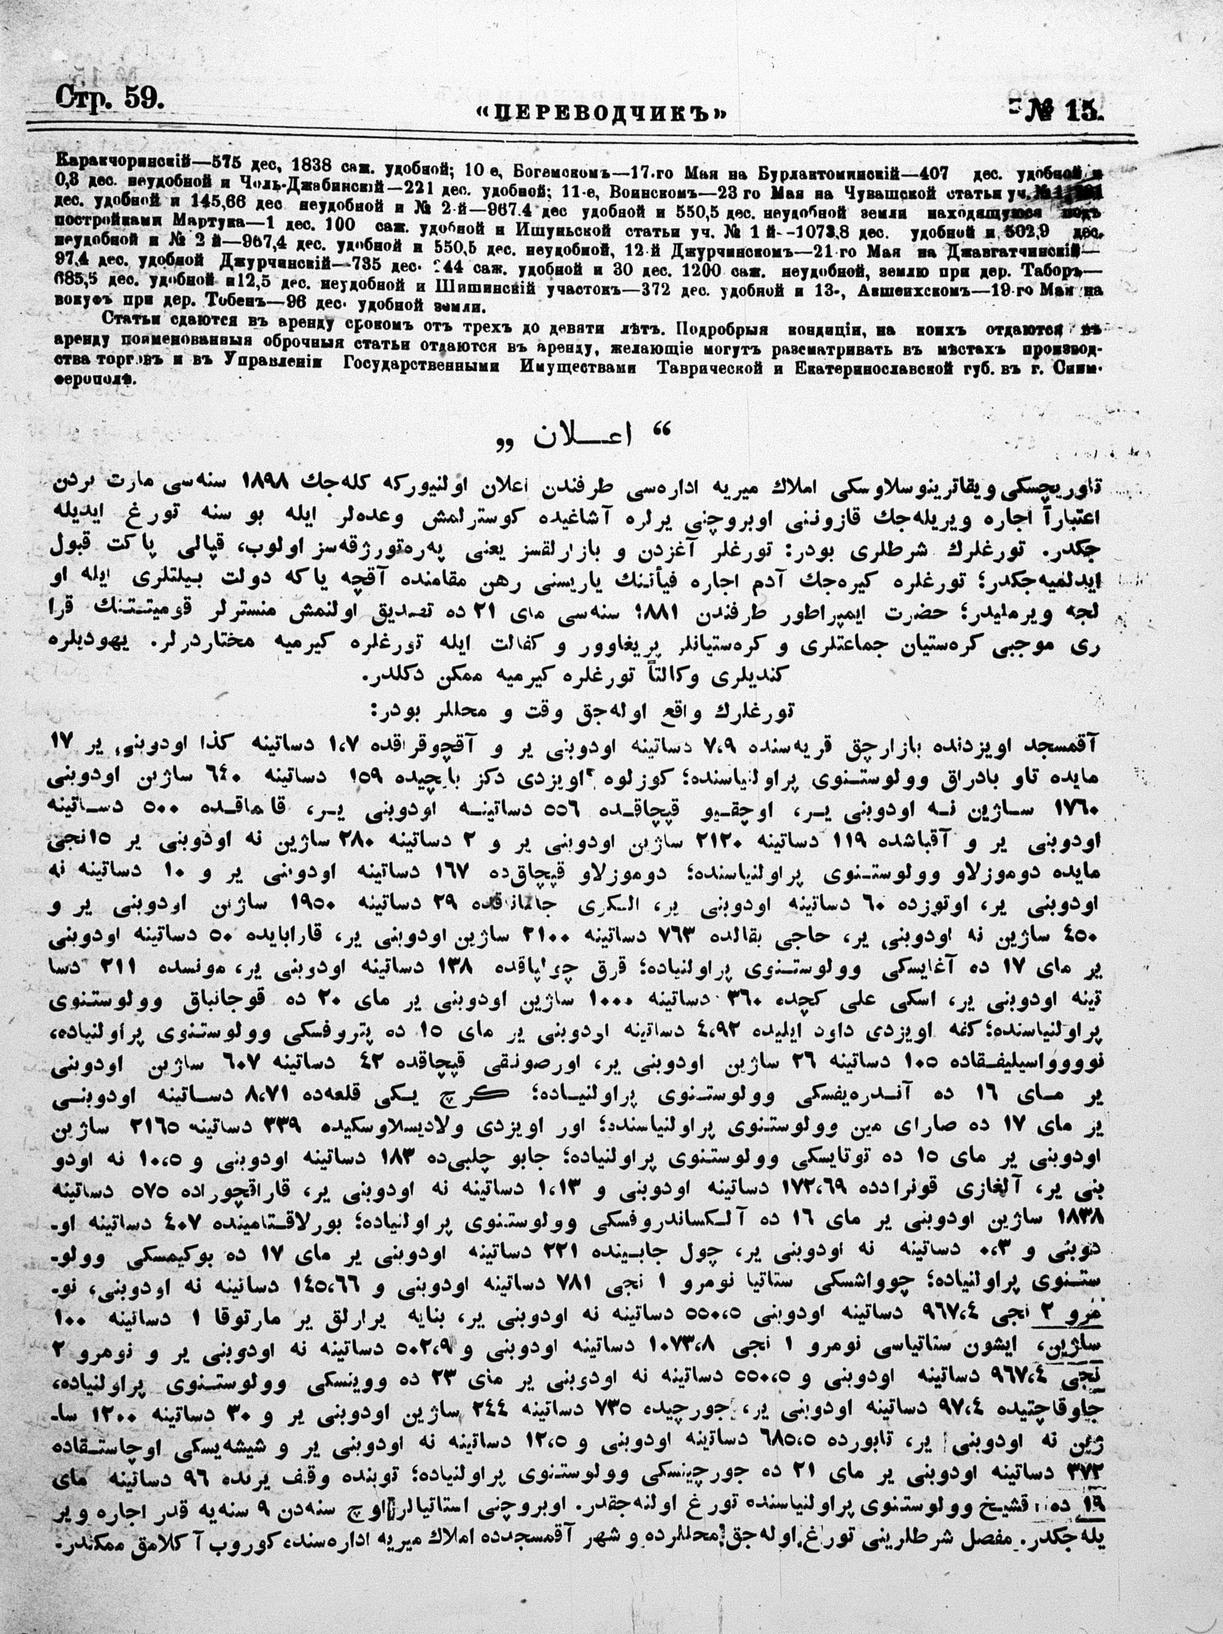 Стр. 59.
«ПЕРЕВОДЧИКЪ»
№ 15.
Каракчоринскій—575 дес, 1838 саж. удобной; 10 е, Богемскомъ—17-го Мая на Бурлантоминскій—407 дес. удобной и
0,3 дес. неудобной и Чоль-Джабинскій—221 дес. удобной; 11-е, Воинскомъ—23 го Мая на Чувашской статьи уч.
дес. удобной и 145,66 дес неудобной и № 2-й—967.4 дес удобной и 550,5 дес. неудобной земли находящуюся подъ
постройками Мартука—1 дес. 100 саж. удобной и Ишуньской статьи уч. № 1 й--1073,8 дес. удобной и 502,9 дес.
неудобной и № 2 й—967,4 дес. удобной и 550,5 дес. неудобной, 12-й Джурчинскомъ—21-го Мая на Джавгатчинскій—
97,4 дес. удобной Джурчинскій—735 дес. 244 саж. удобной и 30 дес. 1200 саж. неудобной, землю при дер. Таборъ—
685,5 дес. удобной и 12,5 дес. неудобной и Шишинскій участокъ—372 дес. удобной и 13-, Акшеихскомъ—19-го Мая на
вокуфъ при дер. Тобенъ—96 дес. удобной земли.
Статьи сдаются въ аренду срокомъ отъ трехъ до девяти лѣтъ. Подробрыя кондиціи, на коихъ отдаются въ
аренду поименованныя оброчныя статьи отдаются въ аренду, желающіе могутъ разсматривать въ мѣстахъ производ-
ства торговъ и въ Управленіи Государственными Имуществами Таврической и Екатеринославской губ. въ г. Сим-
ферополѣ.
“ اعـــلان „
تاوريچسكى ويقاترينوسلاوسكى املاك ميريه اداره‌سى طرفندن اعلان اولنيوركه كله‌جك ١٨٩٨ سنه‌سى مارت بردن
اعتباراً اجاره ويريله‌جك قازوننى اوبروچنى يرلره آشاغيده كوسترلمش وعده‌لر ايله بو سنه تورغ ايديله
جكدر. تورغلرك شرطلرى بودر: تورغلر آغزدن و بازارلقسز يعنى په‌ره‌تورژقه‌سز اولوب، قپالى پاكت قبول
ايدلميه‌جكدر؛ تورغلره كيره‌جك آدم اجاره فيأتنك ياريسنى رهن مقامنده آقچه ياكه دولت بيلتلرى ايله او
لجه ويرمليدر؛ حضرت ايمپراطور طرفندن ١٨٨١ سنه‌سى ماى ٢١ ده تصديق اولنمش منسترلر قوميتتنك قرا
رى موجبى كره‌ستيان جماعتلرى و كره‌ستيانلر پريغاوور و كفالت ايله تورغلره كيرميه مختاردرلر. يهوديلره
كنديلرى وكالتاً تورغلره كيرميه ممكن دكلدر.
تورغلرك واقع اوله‌جق وقت و محللر بودر:
آقمسجد اويزدنده بازارچق قريه‌سنده ٧،٩ دساتينه اودوبنى ير و آقچوقراقده ١،٧ دساتينه كذا اودوبنى ير ١٧
مايده تاو بادراق وولوستنوى پراولنياسنده؛ كوزلوه اويزدى دكز باپچيده ١٥٩ دساتينه ٦٤٠ ساژين اودوبنى
١٧٦٠ ساژين نه اودوبنى ير، اوچقيو قپچاقده ٥٥٦ دساتينه اودوبنى ير، قاماقده ٥٠٠ دساتينه
اودوبنى ير و آقباشده ١١٩ دساتينه ٢١٢٠ ساژين اودوبنى ير و ٢ دساتينه ٢٨٠ ساژين نه اودوبنى ير ١٥نجى
مايده دوموزلاو وولوستنوى پراولنياسنده؛ دوموزلاو قپچاق‌ده ١٦٧ دساتينه اودوبنى ير و ١٠ دساتينه نه
اودوبنى ير، اوتوزده ٦٠ دساتينه اودوبنى ير، ٢٩ دساتينه ١٩٥٠ ساژين اودوبنى ير و
٤٥٠ ساژين نه اودوبنى ير، حاجى بقالده ٧٦٣ دساتينه ٢١٠٠ ساژين اودوبنى ير، قارابايده ٥٠ دساتينه اودوبنى
ير ماى ١٧ ده آغايسكى وولوستنوى پراولنياده؛ قرق چولپاقده ١٣٨ دساتينه اودوبنى ير، مونسده ٢١١ دسا
تينه اودوبنى ير، اسكى على كچده ٣٦٠ دساتينه ١٠٠٠ ساژين اودوبنى ير ماى ٢٠ ده قوجانباق وولوستنوى
پراولنياسنده؛ كفه اويزدى داود ايليده ٤،٩٢ دساتينه اودوبنى ير ماى ١٥ ده پتروفسكى وولوستنوى پراولنياده،
نوووواسيليفقاده ١٠٥ دساتينه ٢٦ ساژين اودوبنى ير، اورصونقى قپچاقده ٤٢ دساتينه ٦٠٧ ساژين اودوبنى
ير ماى ١٦ ده آندره‌يفسكى وولوستنوى پراولنياده؛ كرچ يكى قلعه‌ده ٨،٧١ دساتينه اودوبنى
ير ماى ١٧ ده صاراى مين وولوستنوى پراولنياسنده؛ اور اويزدى ولاديسلاوسكيده ٣٣٩ دساتينه ٢١٦٥ ساژين
اودوبنى ير ماى ١٥ ده توتايسكى وولوستنوى پراولنياده؛ جابو چلبى‌ده ١٨٣ دساتينه اودوبنى و ١٠،٥ نه اودو
بنى ير، آلغازى قونرادده ١٧٢،٦٩ دساتينه اودوبنى و ١،١٣ دساتينه نه اودوبنى ير، قاراقچوراده ٥٧٥ دساتينه
١٨٣٨ ساژين اودوبنى ير ماى ١٦ ده آلكساندروفسكى وولوستنوى پراولنياده؛ بورلاقتامينده ٤٠٧ دساتينه او-
دوبنى و ٠،٣ دساتينه نه اودوبنى ير، چول جابينده ٢٢١ دساتينه اودوبنى ير ماى ١٧ ده بوكيمسكى وولو-
ستنوى پراولنياده؛ چوواشسكى ستاتيا نومرو ١ نجى ٧٨١ دساتينه اودوبنى و ١٤٥،٦٦ دساتينه نه اودوبنى، نو-
مرو ٢ نجى ٩٦٧،٤ دساتينه اودوبنى ٥٥٠،٥ دساتينه نه اودوبنى ير، بنايه يرارلق ير مارتوقا ١ دساتينه ١٠٠
ساژين، ايشون ستاتياسى نومرو ١ نجى ١٠٧٣،٨ دساتينه اودوبنى و ٥٠٢،٩ دساتينه نه اودوبنى ير و نومرو ٢
نجى ٩٦٧،٤ دساتينه اودوبنى و ٥٥٠،٥ دساتينه نه اودوبنى ير ماى ٢٣ ده ووينسكى وولوستنوى پراولنياده،
جاوقاچتيده ٩٧،٤ دساتينه اودوبنى ير، جورچيده ٧٣٥ دساتينه ٢٤٤ ساژين اودوبنى ير و ٣٠ دساتينه ١٢٠٠ سا-
ژين نه اودوبنى ير، تابورده ٦٨٥،٥ دساتينه اودوبنى و ١٢،٥ دساتينه نه اودوبنى ير و شيشه‌يسكى اوچاستقاده
٣٧٢ دساتينه اودوبنى ير ماى ٢١ ده جورچينسكى وولوستنوى پراولنياده؛ توبنده وقف يرنده ٩٦ دساتينه ماى
١٩ ده اقشيخ وولوستنوى پراولنياسنده تورغ اولنه‌جقدر. اوبروچنى استاتيالر اوچ سنه‌دن ٩ سنه‌يه قدر اجاره وير
يله‌جكدر. مفصل شرطلرينى تورغ اوله‌جق محللرده و شهر آقمسجدده املاك ميريه اداره‌سنده كوروب آكلامق ممكندر.